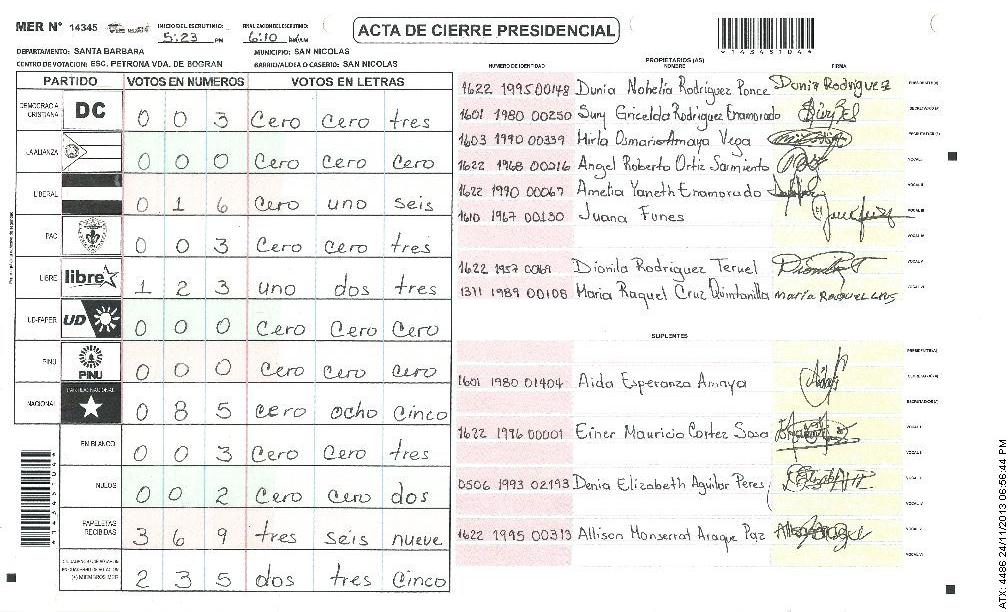 MER Nº 14345
INICIO DEL ESCRUTINIO: 5:23 PM
FINALIZACION DEL ESCRUTINIO: 6:10
ACTA DE CIERRE PRESIDENCIAL
DEPARTAMENTO: SANTA BARBARA MUNICIPIO: SAN NICOLAS
CENTRO DE VOTACION: ESC. PETRONA VDA. DE BOGRAN BARRIO/ALDEA O CASERIO: SAN NICOLAS
PARTIDO VOTOS EN NUMEROS VOTOS EN LETRAS
DEMOCRACIA CRISTIANA DC 0 0 3 Cero Cero tres
LA ALIANZA 0 0 0 Cero Cero Cero
LIBERAL 0 1 6 Cero uno seis
PAC 0 0 3 Cero Cero tres
LIBRE libre 1 2 3 uno dos tres
UD-FAPER UD 0 0 0 Cero Cero Cero
PINU PINU 0 0 0 Cero Cero Cero
NACIONAL PARTIDO NACIONAL 0 8 5 cero ocho Cinco
EN BLANCO 0 0 3 Cero Cero tres
NULOS 0 0 2 Cero Cero dos
PAPELETAS RECIBIDAS 3 6 9 tres seis nueve
(+) MIEMBROS MER 2 3 5 dos tres Cinco
PROPIETARIOS (AS)
NUMERO DE IDENTIDAD NOMBRE FIRMA
1622 1995 00148 Dunia Nohelia Rodriguez Ponce Dunia Rodriguez
1601 1980 00250 Suny Gricelda Rodriguez Enamorado
1603 1990 00339 Mirla Osmari Amaya Vega
1622 1968 00216 Angel Roberto Ortiz Sarmiento
1622 1990 00067 Amelia Yaneth Enamorado
1610 1967 00130 Juana Funes
1622 1957 Dionila Rodriguez Teruel
1311 1989 00108 Maria Raquel Cruz Quintanilla Maria Raquel Cruz
SUPLENTES
1601 1980 01404 Aida Esperanza Amaya
1622 1996 00001 Einer Mauricio Cortez Sosa
0506 1993 02193 Denia Elizabeth Aguilar Peres
1622 1995 00313 Allison Monserrat Araque Paz
ATX: 4486 24/11/2013 06:56:44 PM